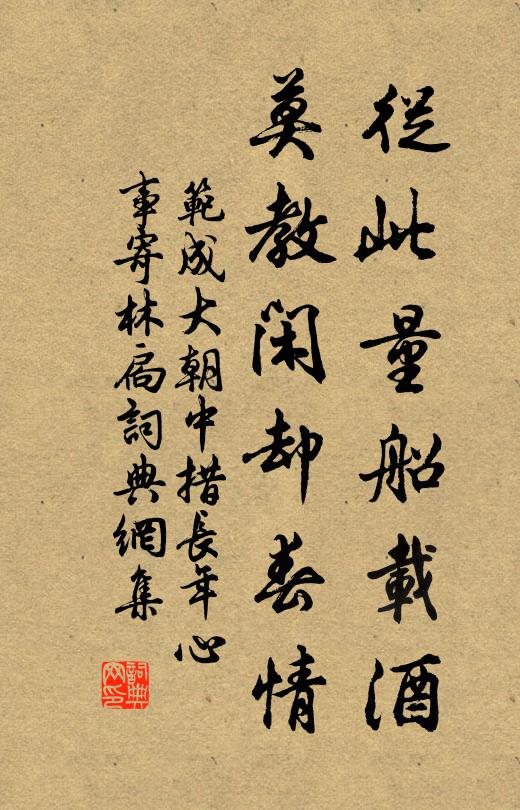 從此量船載酒
莫教閑却春情
範成大朝中措長年心
事寄林扃詞典網集
詞典
网印